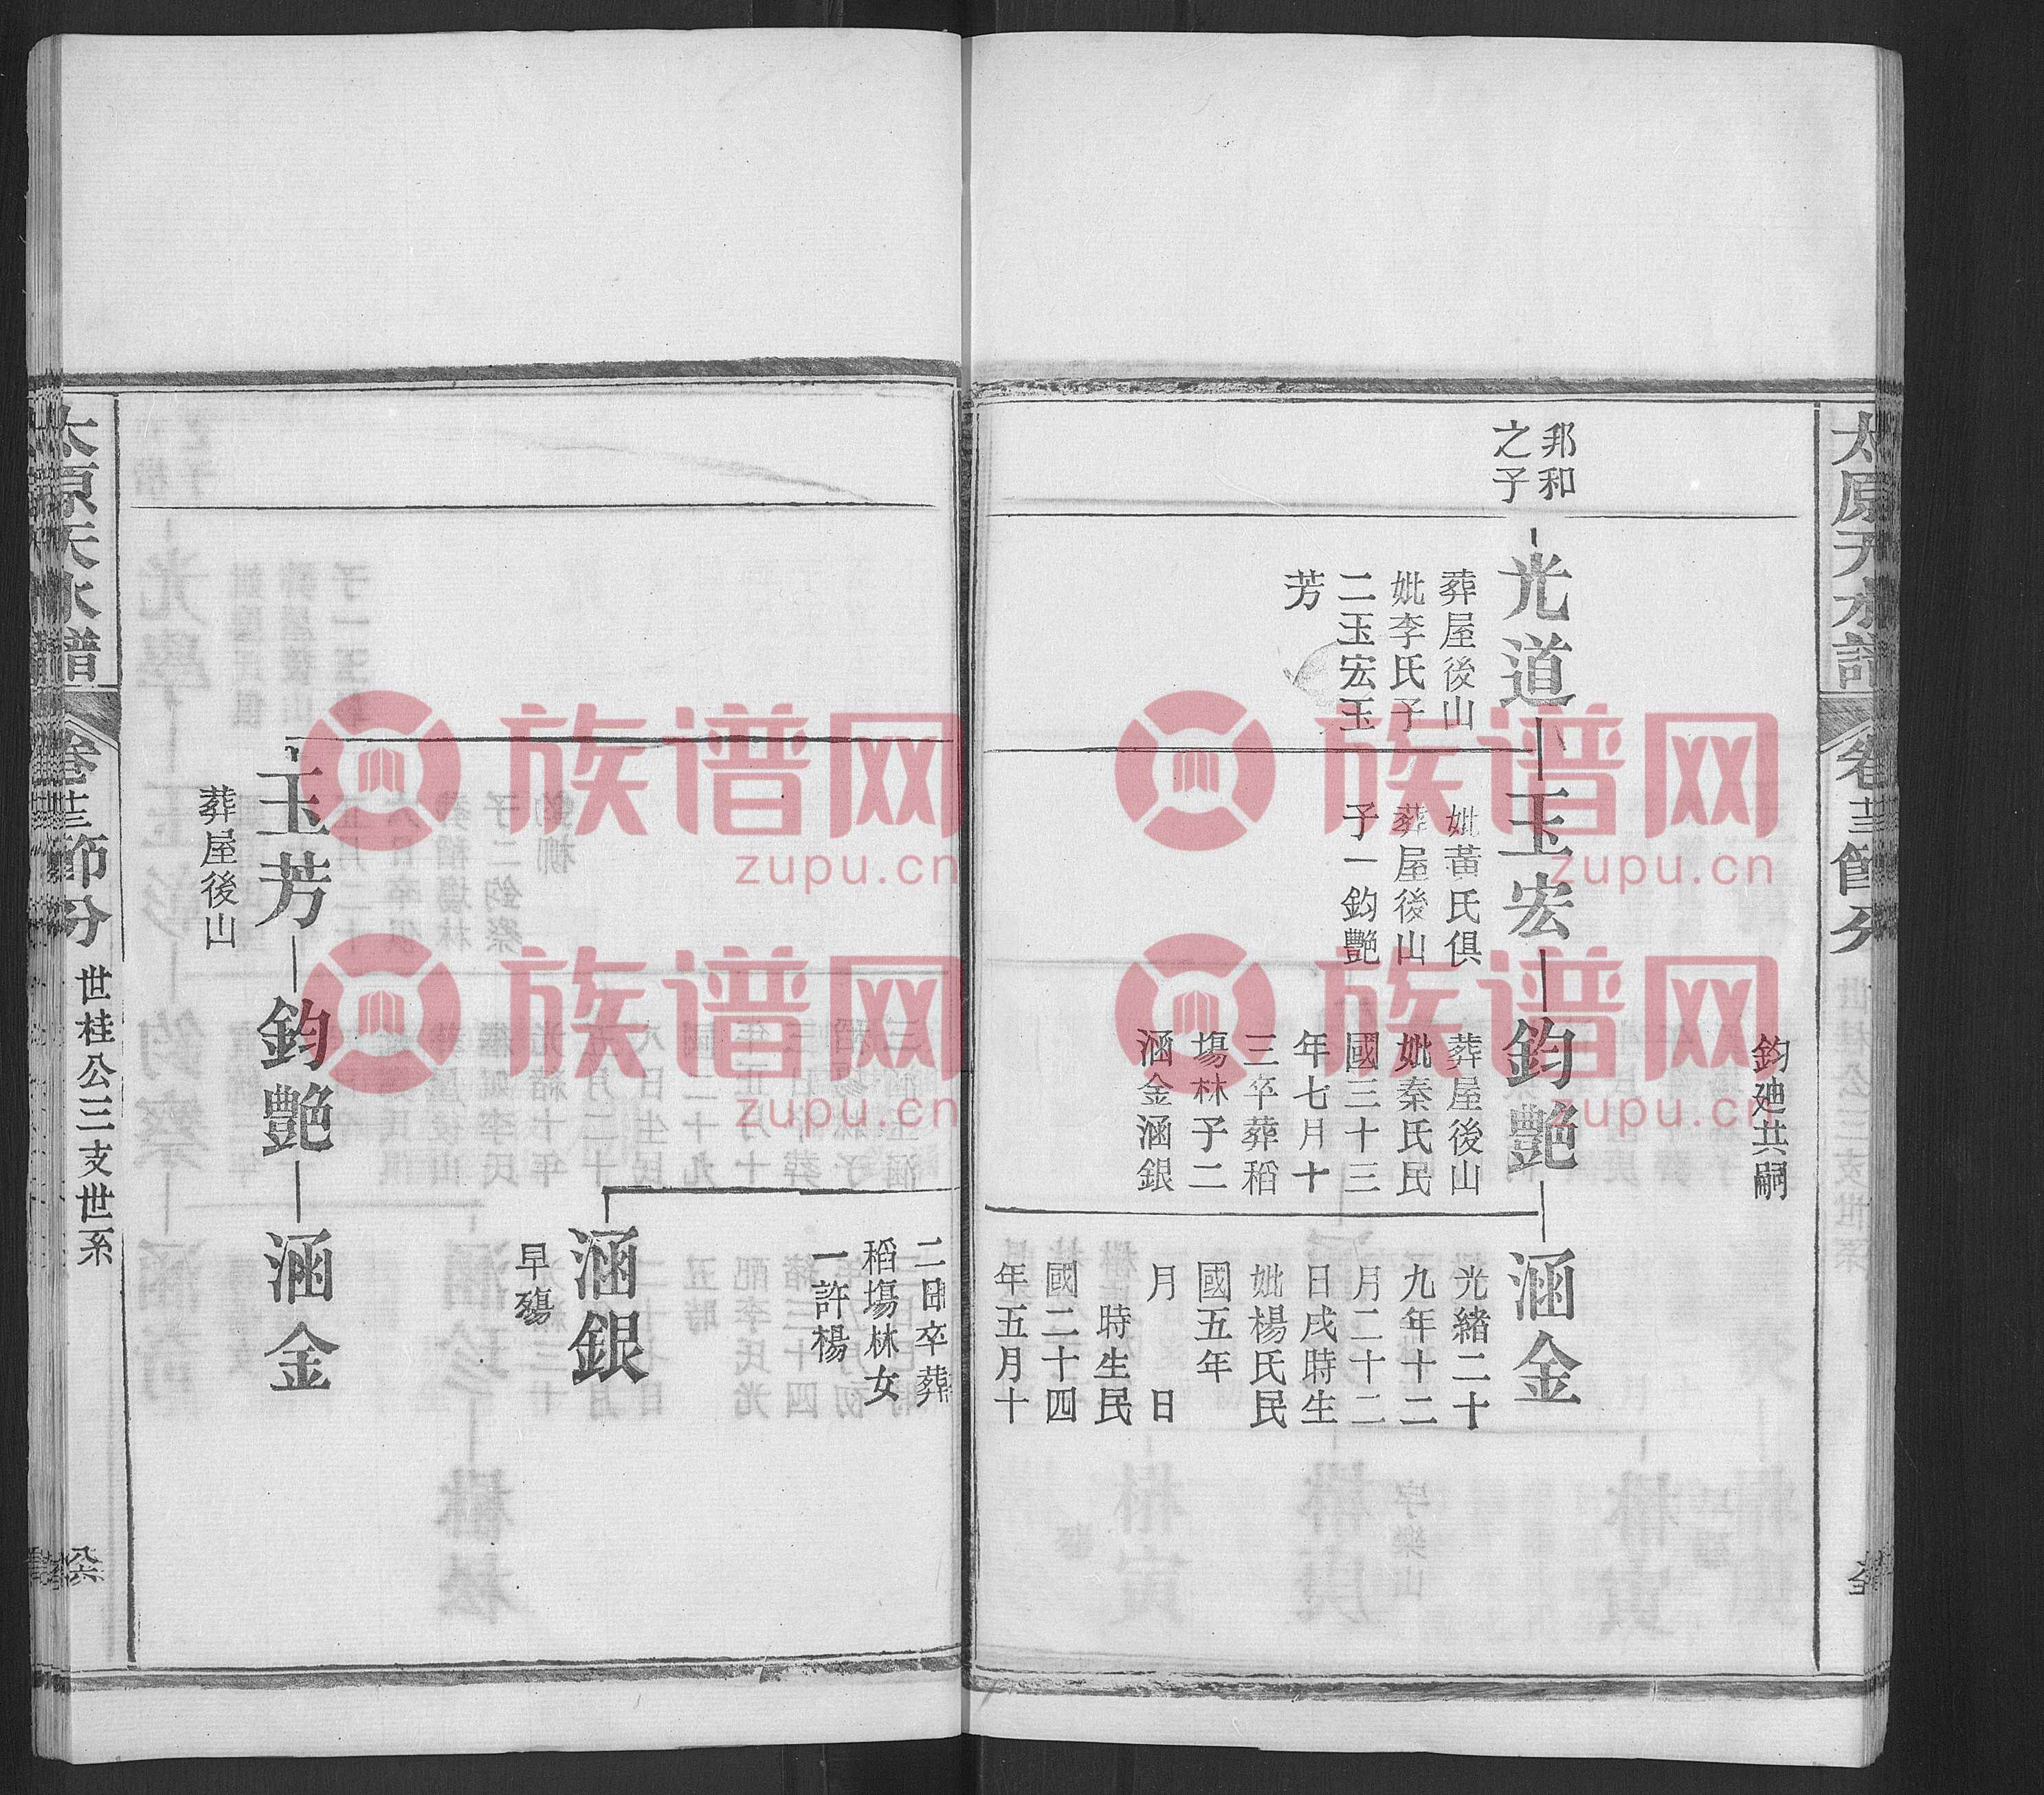 太原天水譜
卷
節分
鈞廸共嗣
邦和
之子
光道
葬屋後山
妣李氏子
二玉宏玉
芳
玉宏
妣黃氏俱
葬屋後山
子一鈞艷
鈞艷
葬屋後山
妣秦氏民
國三十三
年七月十
三卒葬稻
塲林子二
涵金涵銀
涵金
光緒二十
九年十二
月二十二
日戌時生
妣楊氏民
國五年
月 日
時生民
國二十四
年五月十
二日卒葬
稻塲林女
一許楊
涵銀
早殤
玉芳
葬屋後山
鈞艷
涵金
太原天水譜
卷
節分
世桂公三支世系
族谱网
zupu.cn
族谱网
zupu.cn
族谱网
zupu.cn
族谱网
zupu.cn